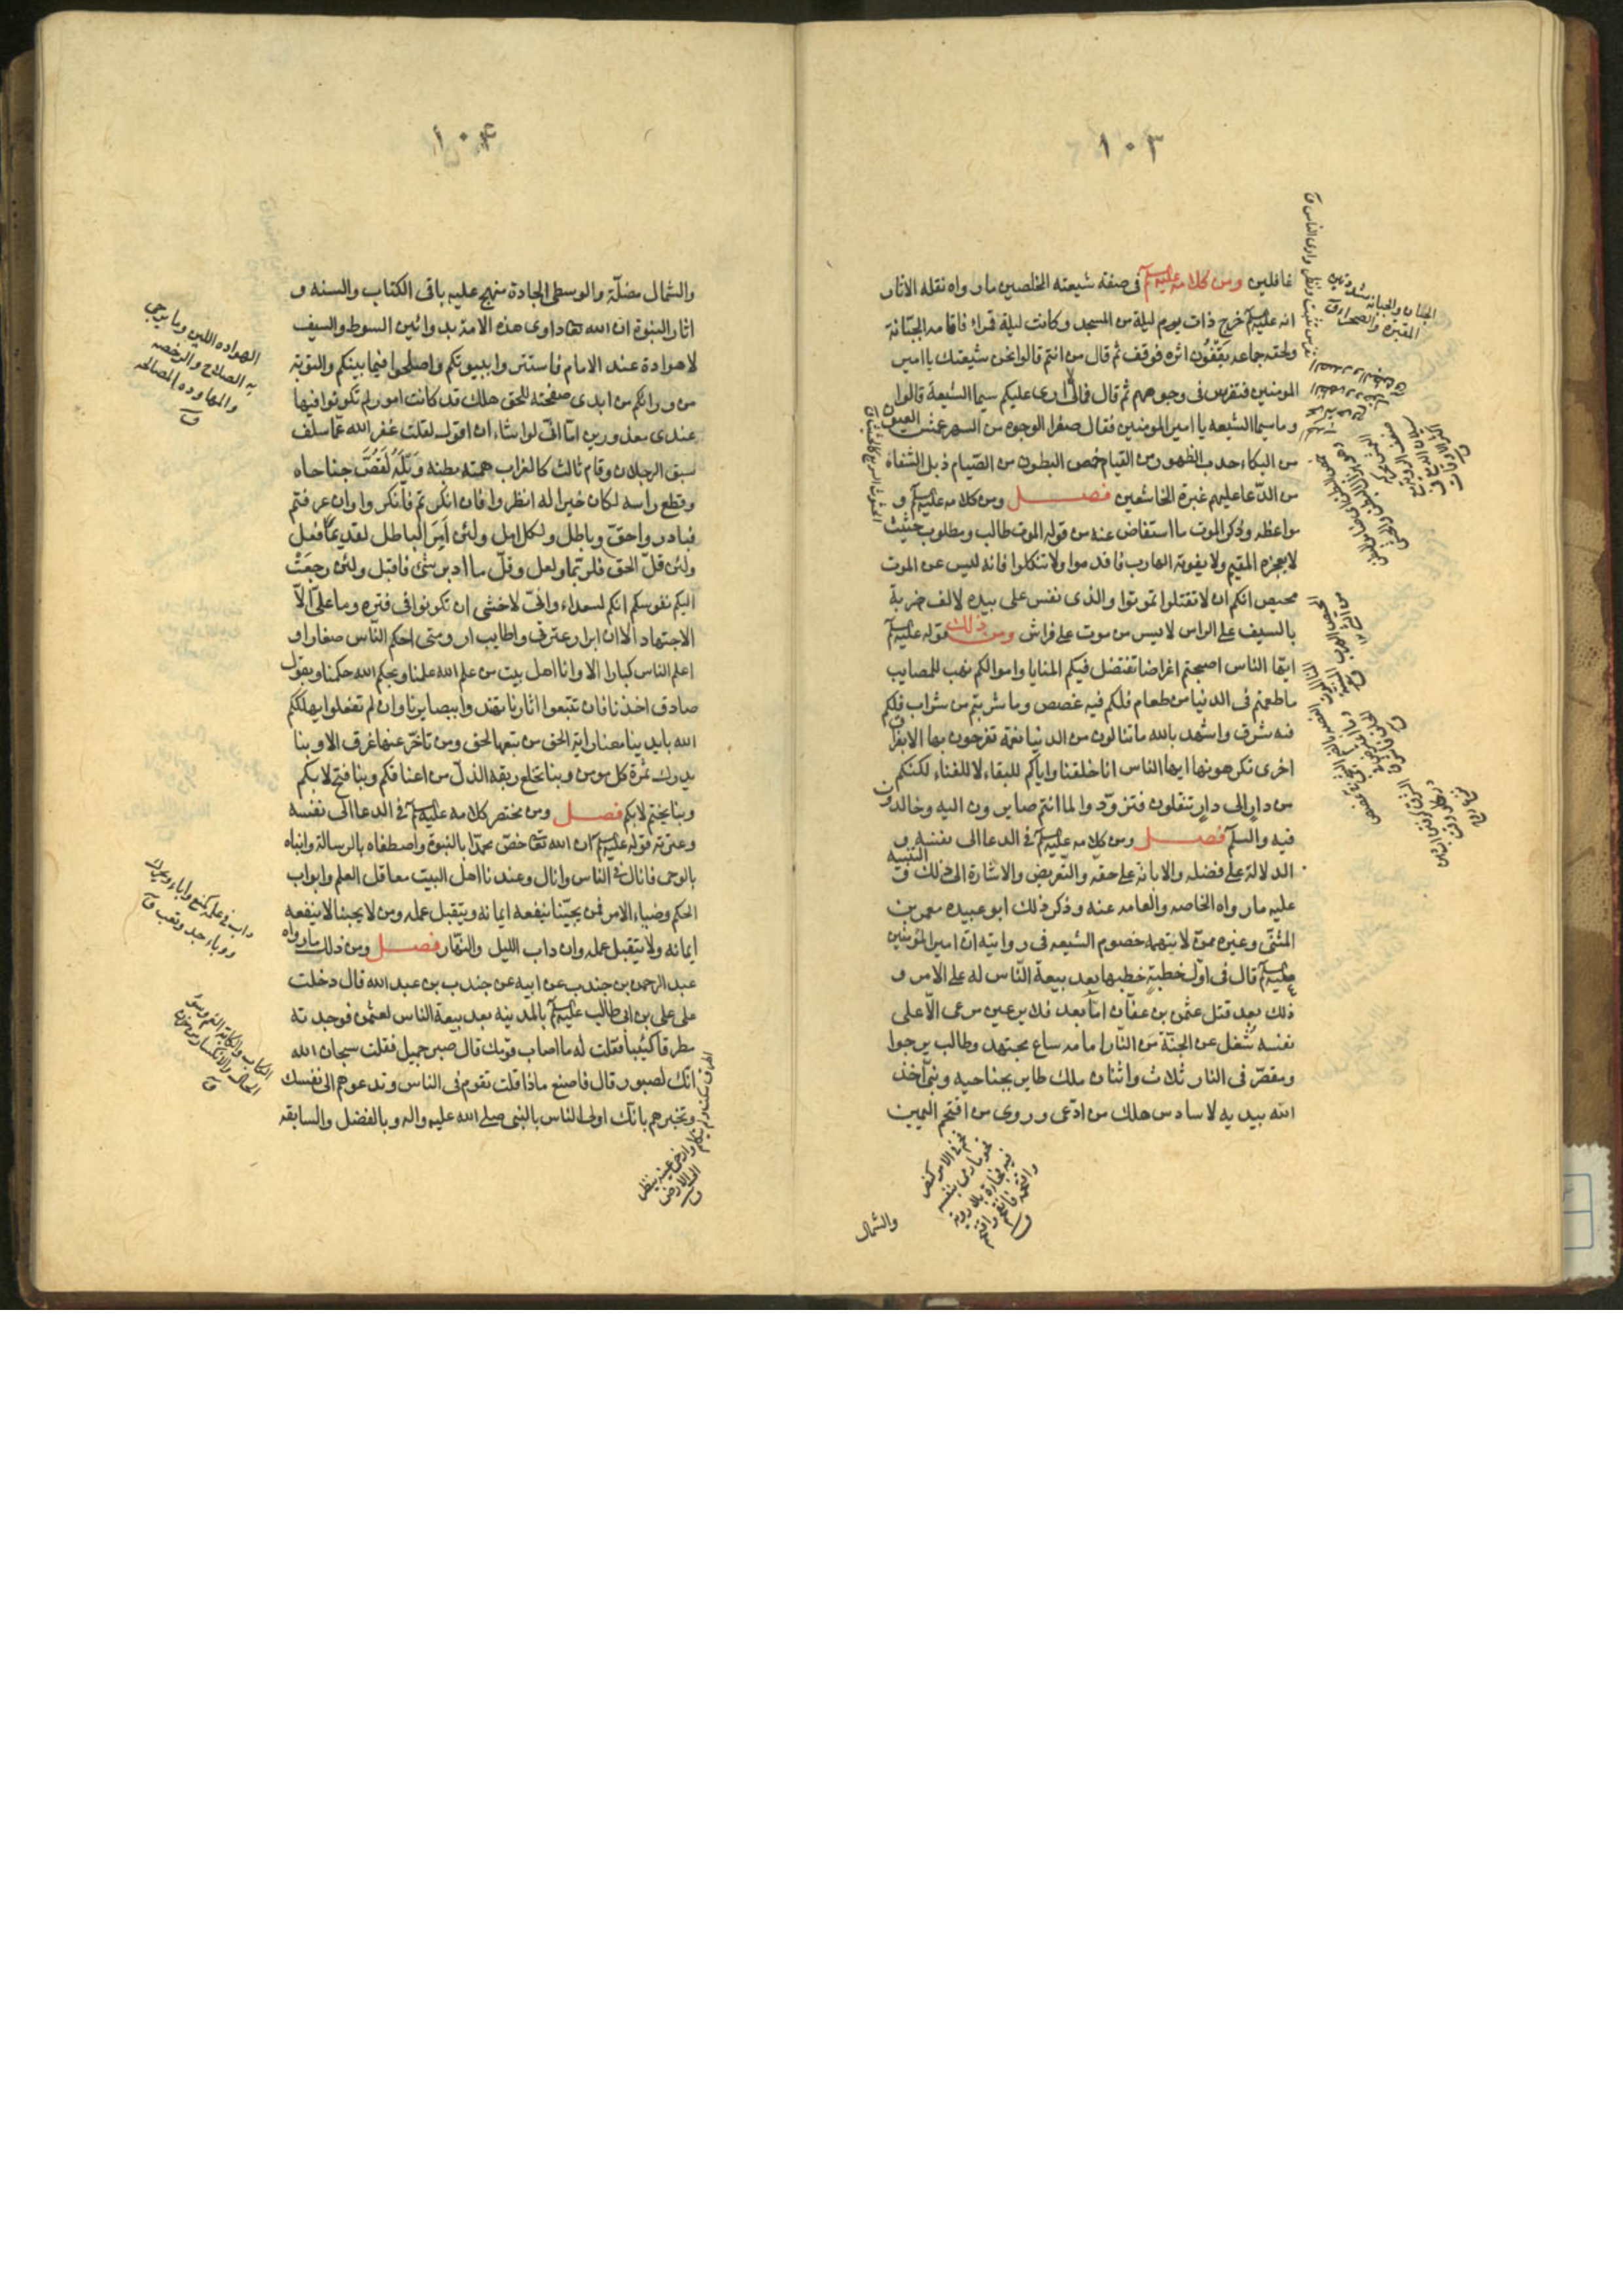 ١٠٣
غافلين ومن كلامه عليه السلم فى صفة شيعته المخلصين ما رواه نقله الاثار
انه عليه السلم خرج ذات يوم ليلة من المسجد وكانت ليلة قمراء فاقامه الجبّانة
ولحقه جماعه يقفّون اثره فوقف ثم قال من انتم قالوا نحن شيعتك يا امير
المومنين فتفرس فى وجوههم ثم قال فمالى لا ارى عليكم سيما الشيعة قالوا
وما سيما الشيعه يا امير المومنين فقال صفر الوجوه من السهر عمش العيون
من البكاء حدب الظهور من القيام خمص البطون من الصّيام ذبل الشفاه
من الدّعا عليهم غبرة الخاشعين فصل ومن كلامه عليه السلم و
مواعظه وذكر الموت ما استفاض عنه من قوله الموت طالب ومطلوب حثيث
لا يعجزه المقيم ولا يفوته الهارب فاقدموا ولا تنكلوا فانه ليس عن الموت
محيص انكم ان لا تقتلوا تموتوا والذى نفس على بيده لالف ضربة
بالسيف على الراس لايسر من موت على فراش ومن ذلك قوله عليه السلم
ايها الناس اصبحتم اغراضا تنتضل فيكم المنايا واموالكم نهب للمصايب
ما طعمتم فى الدنيا من طعام فلكم فيه غصص وما شربتم من شراب فلكم
فيه شرق واشهد بالله ما تنالون من الدنيا نعمة تفرحون بها الا بفراق
اخرى تكرهونها ايها الناس انا خلقنا واياكم للبقاء لا للفناء لكنكم
من دار الى دار تنقلون فتزوّدوا لما انتم صايرون اليه وخالدون
فيه والسلم فصل ومن كلامه عليه السلم فى الدعا الى نفسه و
الدلالة على فضله والابانة على حقه والتعريض والاشارة الى ذلك و التنبيه
عليه ما رواه الخاصه والعامه عنه وذكر ذلك ابو عبيده معمر بن
المثنّى وغيره ممن لا يتهمه خصوم الشيعه فى روايته ان امير المومنين
عليه السلم قال فى اوّل خطبة خطبها بعد بيعة النّاس له على الامر و
ذلك بعد قتل عثمن بن عفّان امّا بعد فلا يرعين مرعى الّا على
نفسه شغل عن الجنّة من النار امامه ساع مجتهد وطالب يرجوا
ومقصّر فى النار ثلاث واثنان ملك طاير بجناحيه ونبىّ اخذ
الله بيديه لا سادس هلك من ادّعى وروى من اقتحم اليمين
والشمال
١٠۴
والشمال مضلّة والوسطى الجادة منهج عليه باقى الكتاب والسنه و
اثار النبوة ان الله تعا داوى هذه الامة بدوائين السوط والسيف
لا هوادة عند الامام فاستتروا ببيوتكم واصلحوا فيما بينكم والتوبة
من ورائكم من ابدى صفحته للحق هلك قد كانت امور لم تكونوا فيها
عندى بمعذورين اما انى لو اشاء ان اقول لقلت عفر الله عمّا سلف
سبق الرجلان وقام ثالث كالغراب همته بطنه ويله لو قصّ جناحاه
وقطع راسه لكان خيرا له انظروا فان انكرتم فانكروا وان عرفتم
فبادروا حقّ وباطل ولكل اهل ولئن امر الباطل لقديما فعل
ولئن قلّ الحق فلربّما ولعل وقلّ ما ادبر شئ فاقبل ولئن رجعت
اليكم نفوسكم انكم لسعداء وانّى لاخشى ان تكونوا فى فتره وما علىّ الّا
الاجتهاد الا ان ابرار عترتى واطايب ارومتى احكم النّاس صغارا و
اعلم الناس كبارا الا وانا اهل بيت من علم الله علمنا وبحكم الله حكمنا وبقول
صادق اخذنا فان تتبعوا اثارنا تهتدوا ببصايرنا وان لم تفعلوا يهلككم
الله بايدينا معنا راية الحق من تبعها لحق ومن تاخّر عنها غرق الا وبنا
يدرك ثمرة كل مومن وبنا تخلع ربقة الذلّ من اعناقكم وبنا فتح لا بكم
وبنا يختم لا بكم فصل ومن مختصر كلامه عليه السلم فى الدعا الى نفسه
وعترته قوله عليه السلم ان الله تعا خصّ محمدا بالنبوة واصطفاه بالرسالة وانباه
بالوحى فانال فى الناس وانال وعندنا اهل البيت معاقل العلم وابواب
الحكم وضياء الامر فمن يحبّنا ينفعه ايمانه ويتقبل عمله ومن لا يحبنا لا ينفعه
ايمانه ولا يتقبل عمله وان داب الليل والنهار فصل ومن ذلك ما رواه
عبد الرحمن بن جندب عن ابيه عن جندب بن عبد الله قال دخلت
على على بن ابى طالب عليه السلم بالمدينه بعد بيعة الناس لعثمن فوجدته
مطرقا كئيبا فقلت له ما اصاب قومك قال صبر جميل فقلت سبحان الله
انّك لصبور قال فاصنع ماذا قلت تقوم فى الناس وتدعوهم الى نفسك
وتخبرهم بانّك اولى الناس بالنبى صلى الله عليه واله وبالفضل والسابقه
الهواده اللين وما يرجى
به الصلاح والرخصه
والمهاوده المصالحه